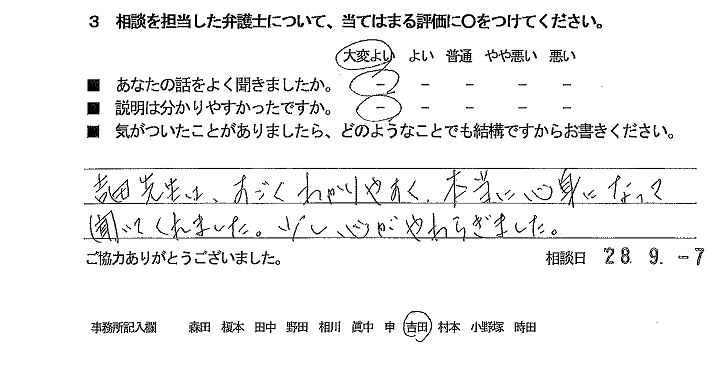 3 相談を担当した弁護士について、当てはまる評価に〇をつけてください。
大変よい よい 普通 やや悪い 悪い
■ あなたの話をよく聞きましたか。 － － － － －
■ 説明は分かりやすかったですか。 － － － － －
■ 気がついたことがありましたら、どのようなことでも結構ですからお書きください。
吉田先生は、すごくわかりやすく、本当に心身になって
聞いてくれました。少し心がやわらぎました。
ご協力ありがとうございました。 相談日 28. 9. -7
事務所記入欄 森田 榎本 田中 野田 相川 眞中 申 吉田 村本 小野塚 時田